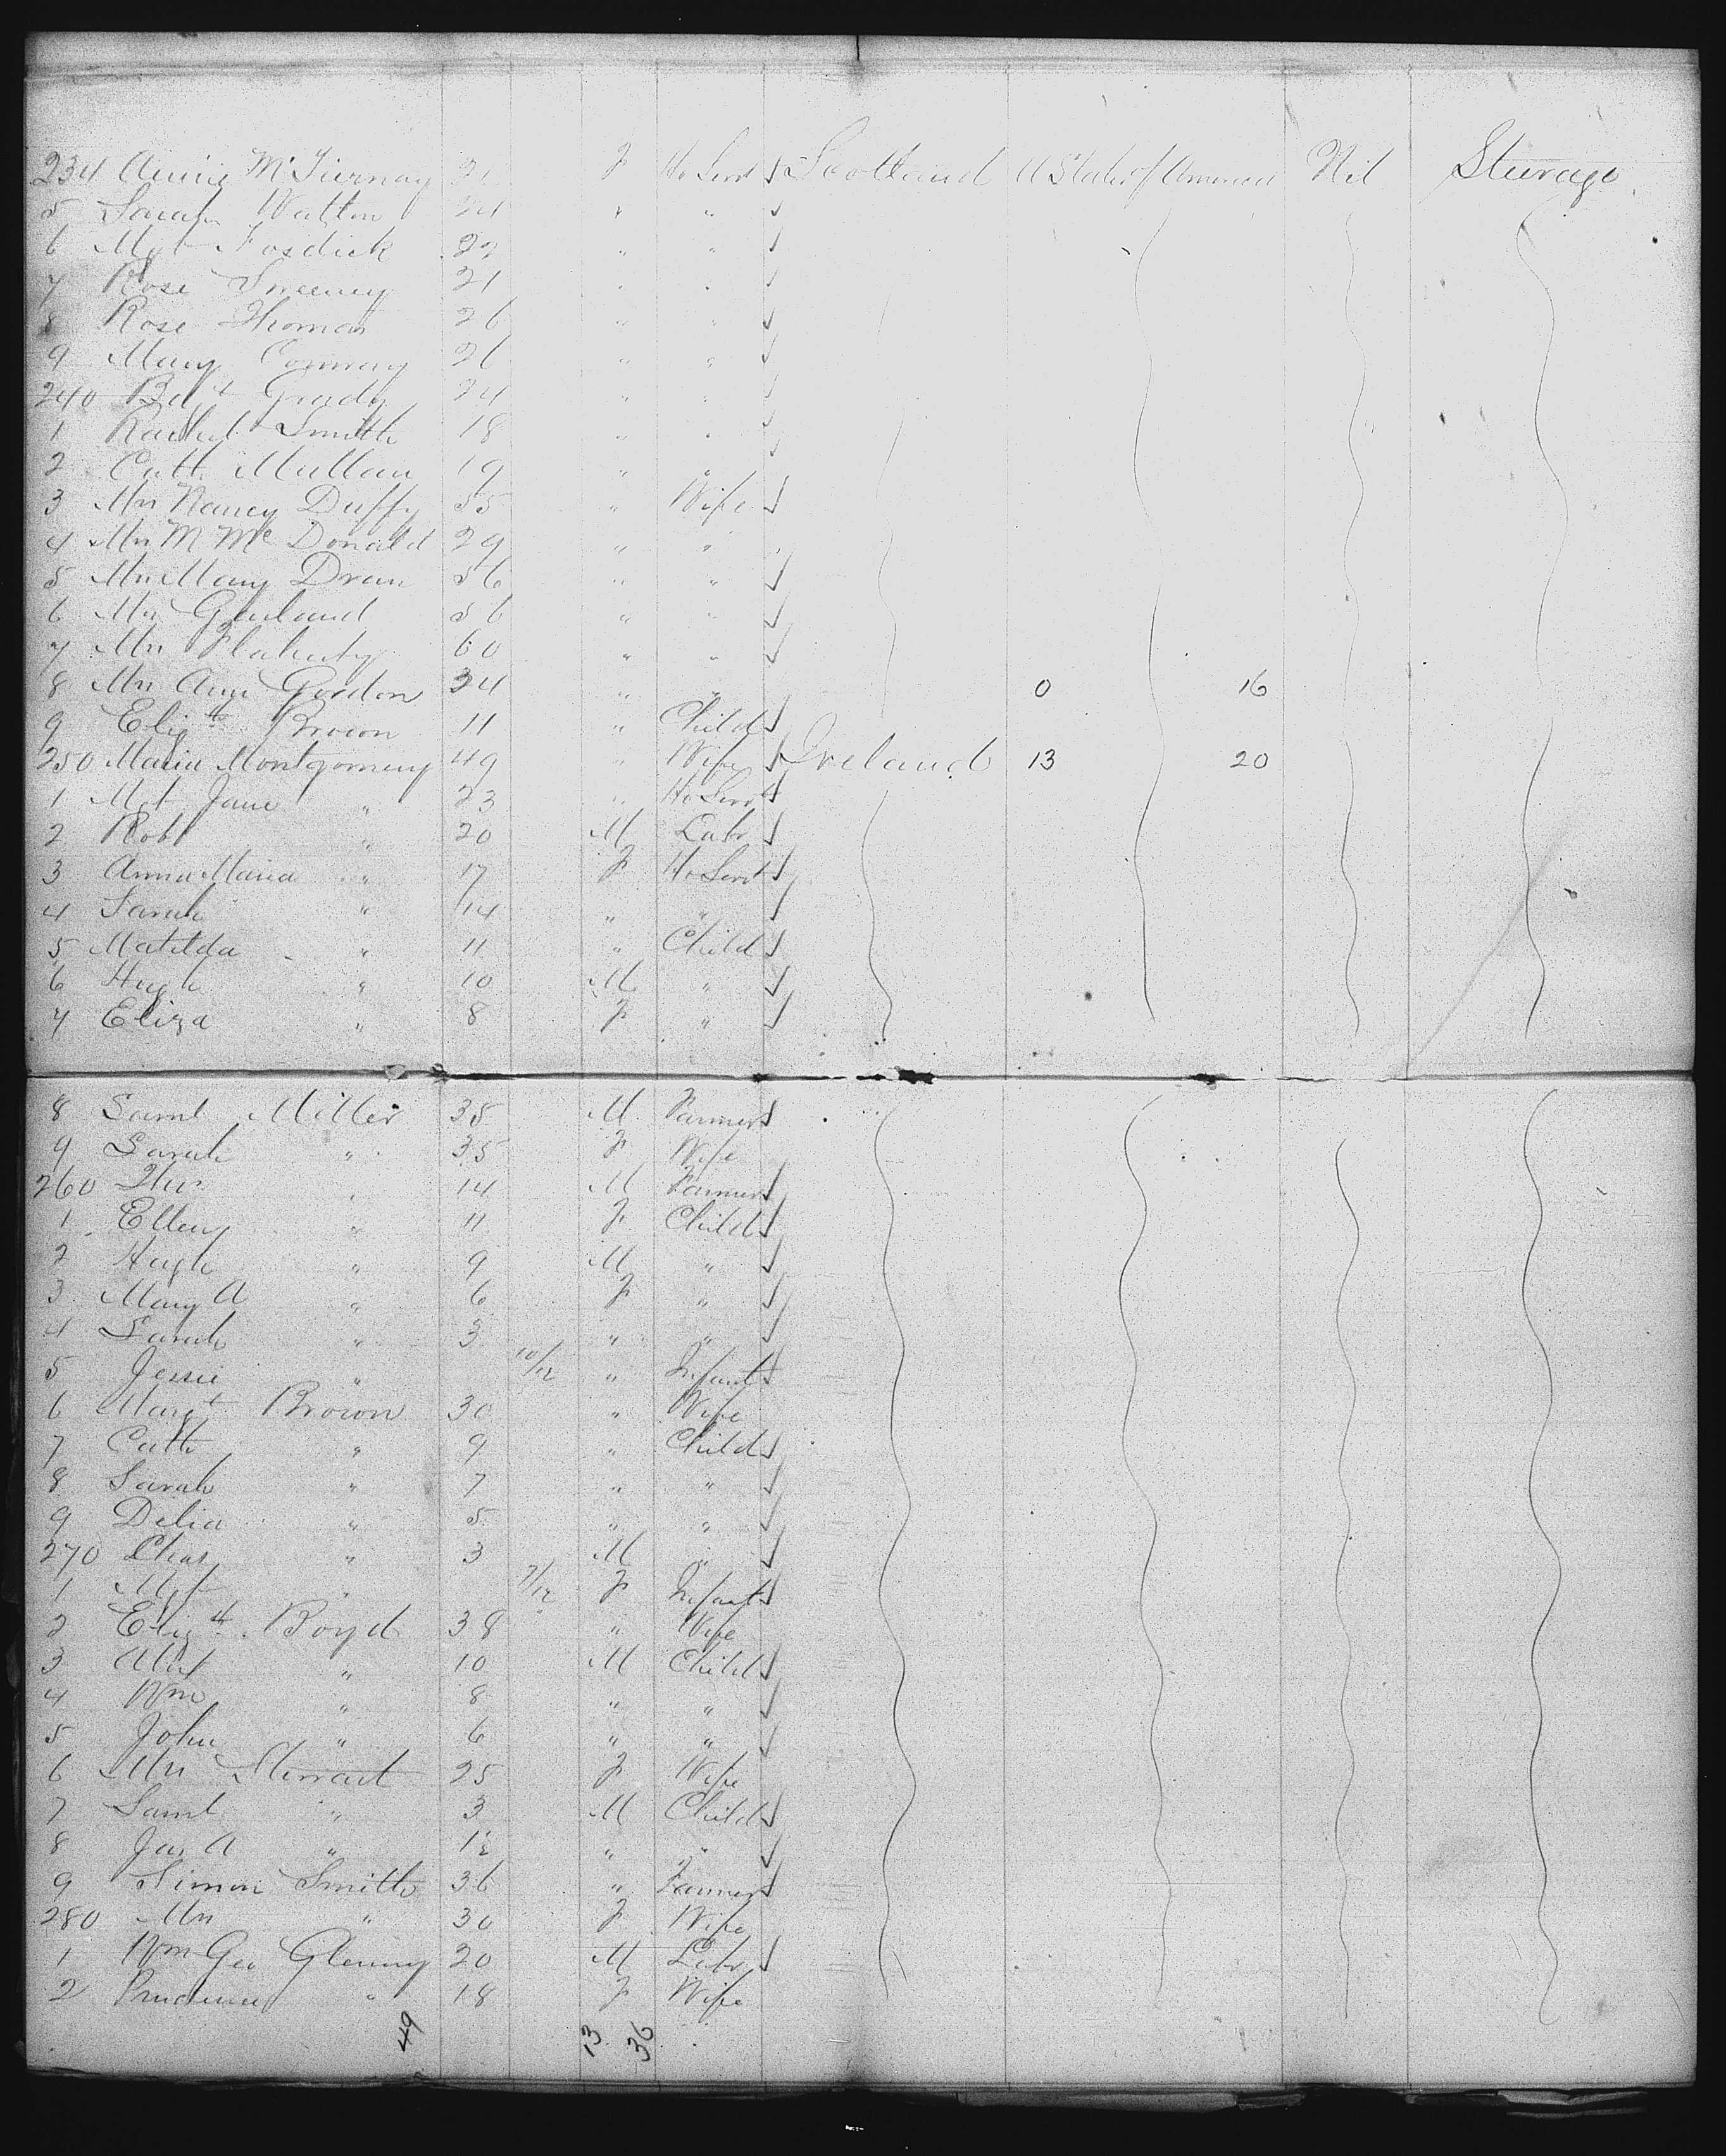 234 Annie McTiernay 21 F Ho Servt Scotland U States of America Nil Steerage
5 Sarah Watton 24 " "
6 Mgt Fosdick 22 " "
7 Rose Sweeney 21 " "
8 Rose Thomas 26 " "
9 Mary Conway 26 " "
240 Bdgt Grady 24 " "
1 Rachel Smith 18 " "
2 Cath Mullan 19 " "
3 Mrs Nancy Duffy 55 " Wife
4 Mrs M McDonald 29 " "
5 Mrs Mary Dran 56 " "
6 Mrs Garland 56 " "
7 Mrs Flaherty 60 " "
8 Mrs Ann Gordon 34 " " 0 16
9 Elizth Brown 11 " Child
250 Maria Montgomery 49 " Wife Ireland 13 20
1 Mgt Jane " 23 " Ho Servt
2 Robt " 20 M Labr
3 Anna Maria " 17 F Ho Servt
4 Sarah " 14 " "
5 Matilda " 11 " Child
6 Hugh " 10 M "
7 Eliza " 8 F "
8 Saml Miller 35 M Farmer
9 Sarah " 35 F Wife
260 Thos " 14 M Farmer
1 Ellen " 11 F Child
2 Hugh " 9 M "
3 Mary A " 6 F "
4 Sarah " 3 " "
5 Jessie " 10/12 " Infant
6 Margt Brown 30 " Wife
7 Cath " 9 " Child
8 Sarah " 7 " "
9 Delia " 5 " "
270 Chas " 3 M "
1 Mgt " 7/12 F Infant
2 Elizth Boyd 38 " Wife
3 Alex " 10 M Child
4 Wm " 8 " "
5 John " 6 " "
6 Mrs Stewart 25 F Wife
7 Saml " 3 M Child
8 Jas A " 1½ " "
9 Simon Smith 36 " Farmer
280 Mrs " 30 F Wife
1 Wm Geo Glenny 20 M Labr
2 Prudence " 18 F Wife
49 13 36